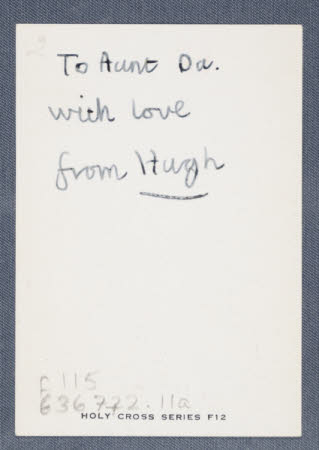 To Aunt Da.
with love
from Hugh
F 115
636772.11a
HOLY CROSS SERIES F12